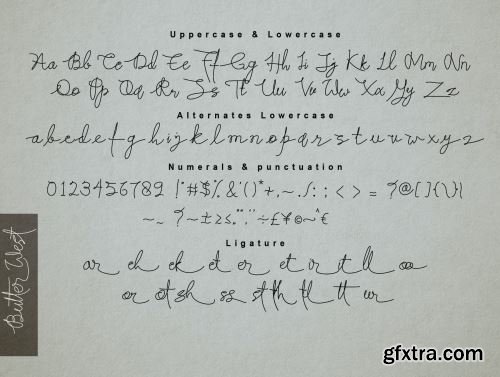 Uppercase & Lowercase
Aa Bb Cc Dd Ee Ff Gg Hh Ii Jj Kk Ll Mm Nn
Oo Pp Qq Rr Ss Tt Uu Vv Ww Xx Yy Zz
Alternates Lowercase
a b c d e f g h i j k l m n o p q r s t u v w x y z
Numerals & punctuation
0123456789 !"#$%&'()*+,-./:;<>=?@[]{\}|
Ligature
ar ch ck et er ot sh ss st th tl tt ur
Butter West
gfxtra.com